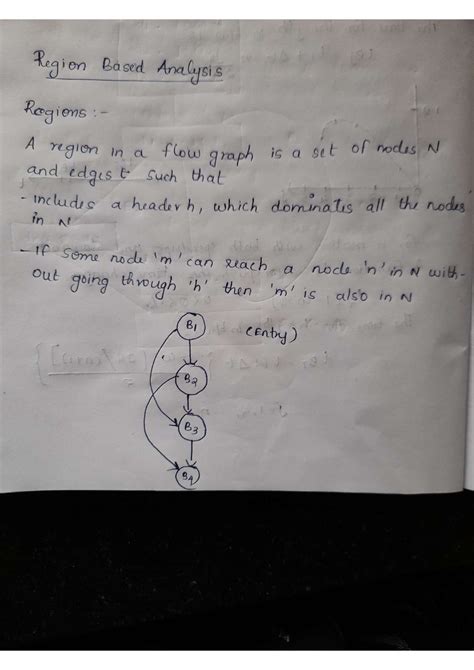 Region Based Analysis
Regions :-
A region in a flow graph is a set of nodes N
and edges E such that
- includes a header h, which dominates all the nodes
in N
- If some node 'm' can reach a node 'n' in N with-
out going through 'h' then 'm' is also in N
B1 (Entry)
B2
B3
B4